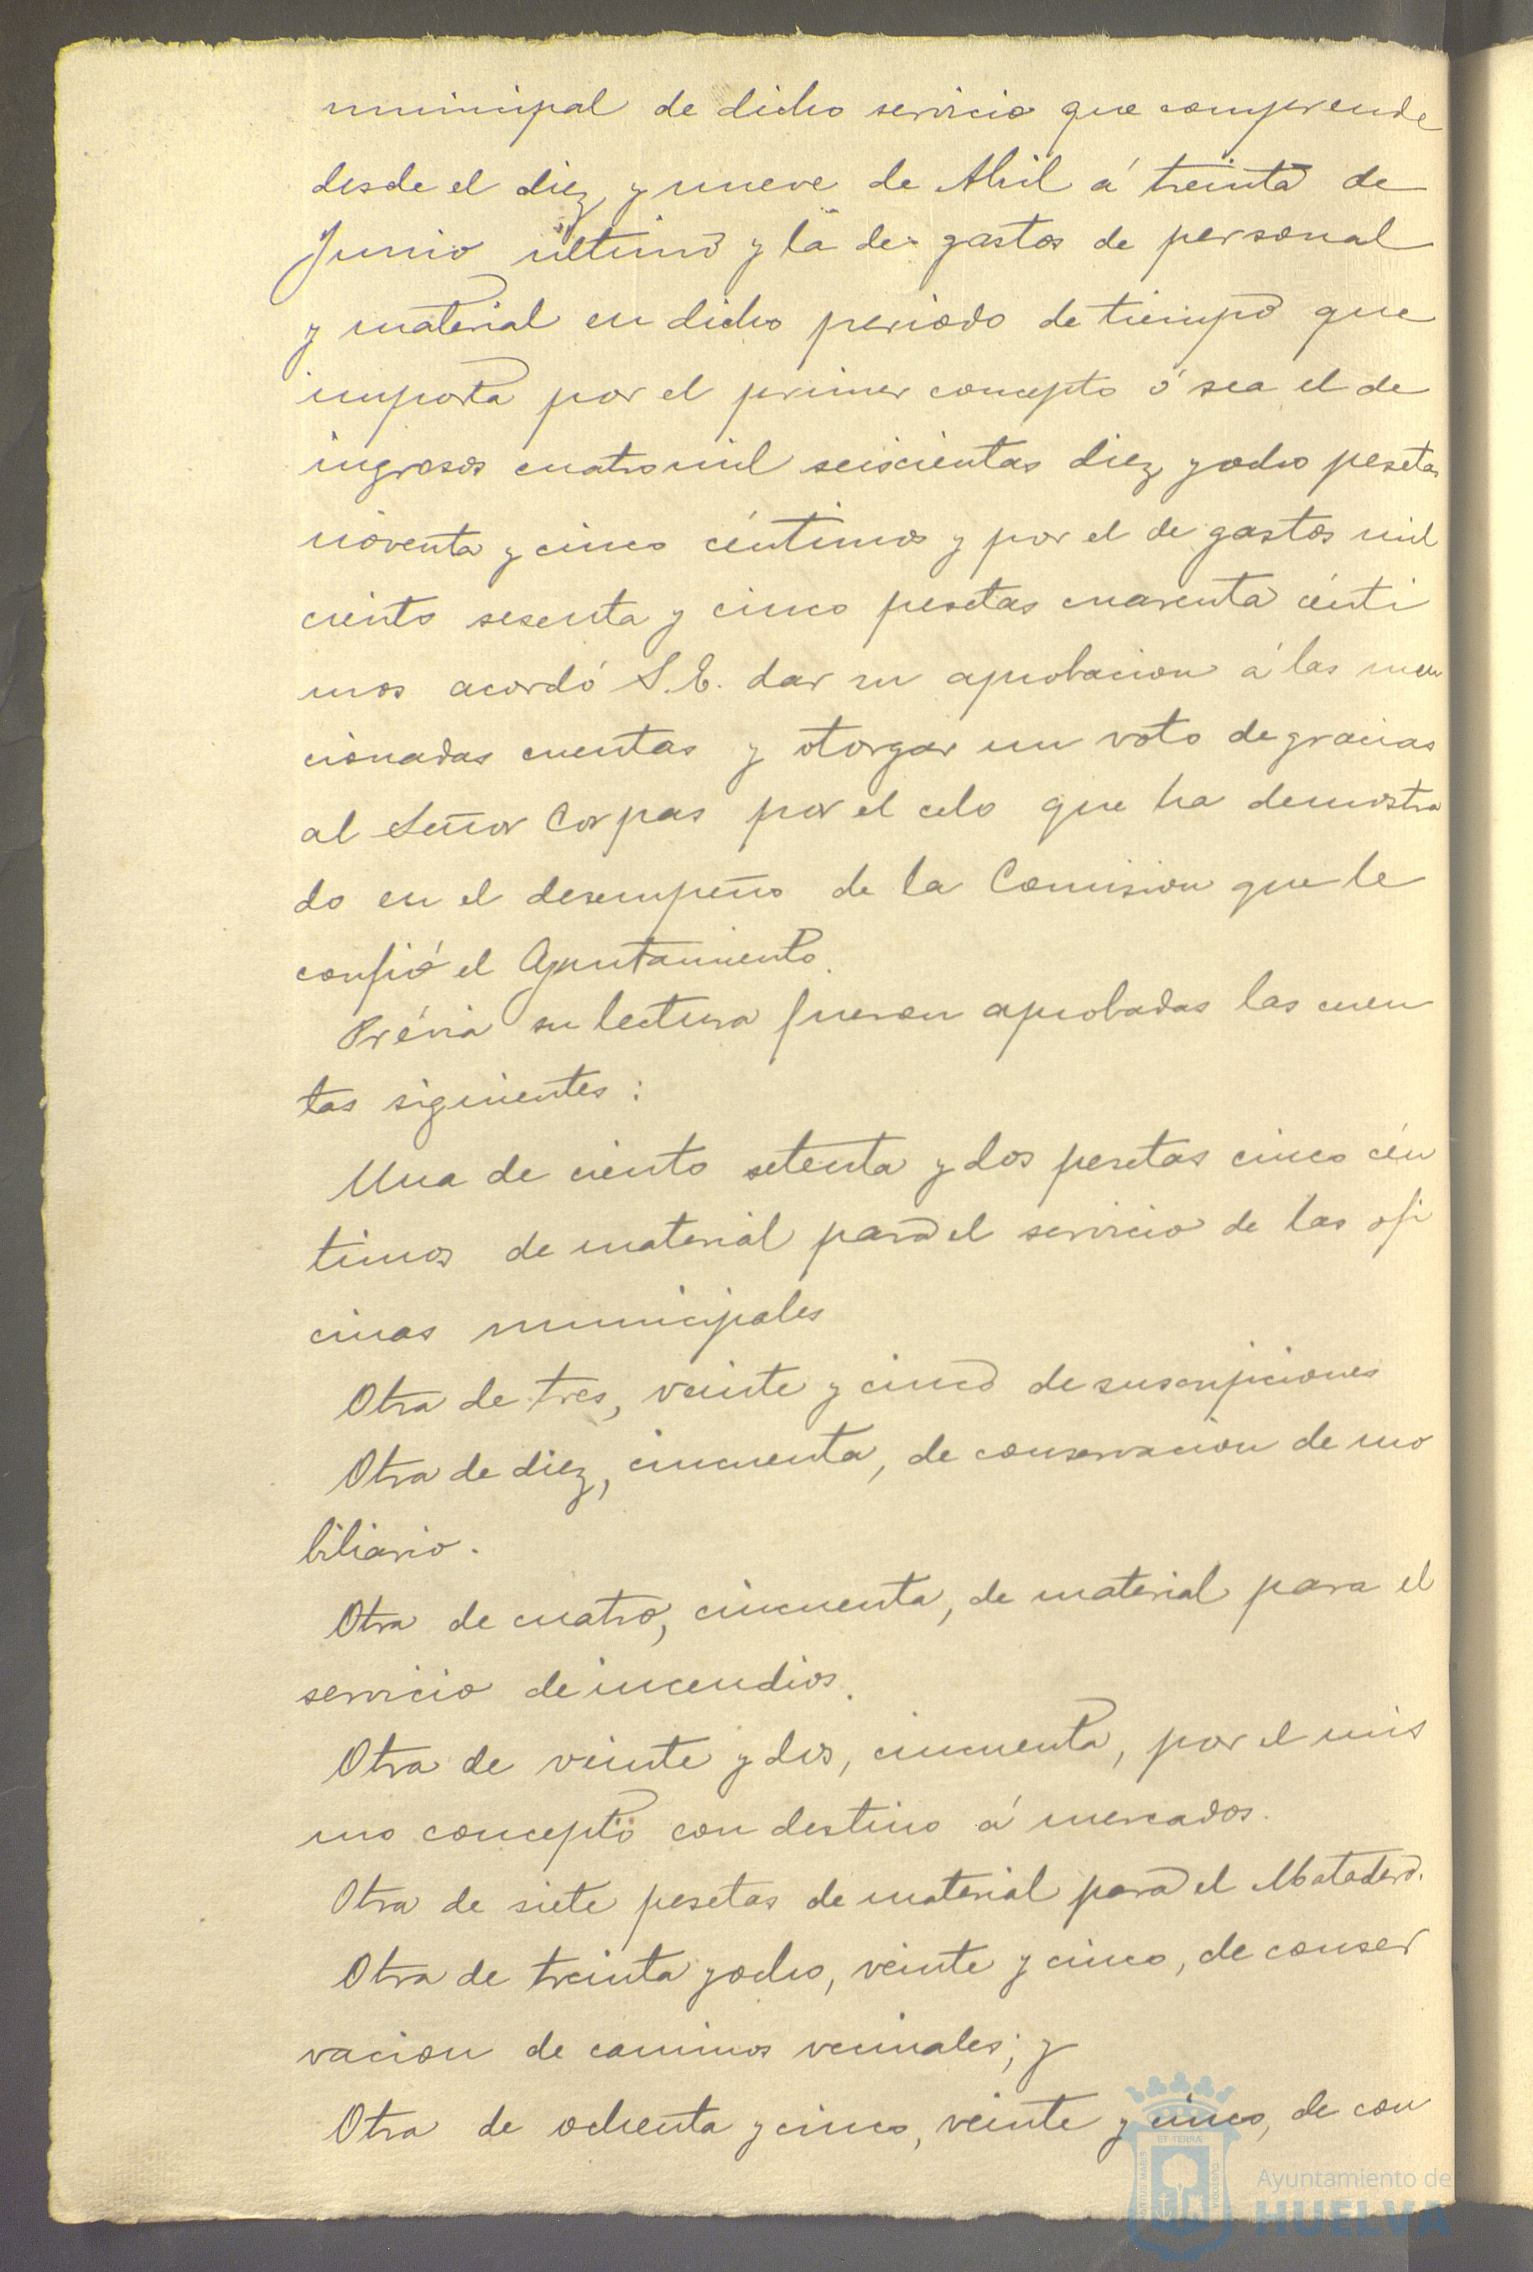 municipal de dicho servicio que comprende
desde el diez y nueve de Abril á treinta de
Junio último y la de gastos de personal
y material en dicho periodo de tiempo que
importa por el primer concepto ó sea el de
ingresos cuatro mil seiscientas diez y ocho pesetas
noventa y cinco céntimos y por el de gastos mil
ciento sesenta y cinco pesetas cuarenta cénti
mos acordó S.E. dar su aprobacion á las men
cionadas cuentas y otorgar un voto de gracias
al Señor Corpas por el celo que ha demostra
do en el desempeño de la Comision que le
confió el Ayuntamiento.
Prévia su lectura fueron aprobadas las cuen
tas siguientes:
Una de ciento setenta y dos pesetas cinco cén
timos de material para el servicio de las ofi
cinas municipales
Otra de tres, veinte y cinco de suscripiciones
Otra de diez, cincuenta, de conservacion de mo
biliario.
Otra de cuatro, cincuenta, de material para el
servicio de incendios.
Otra de veinte y dos, cincuenta, por el mis
mo concepto con destino á mercados.
Otra de siete pesetas de material para el Matadero.
Otra de treinta y ocho, veinte y cinco, de conser
vacion de caminos vecinales; y
Otra de ochenta y cinco, veinte y cinco, de con
Ayuntamiento de
HUELVA